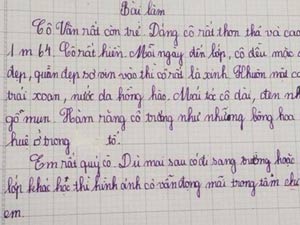 Bài làm
Cô Vân rất còn trẻ. Dáng cô rất thon thả và cao
1 m 64. Cô rất hiền. Mỗi ngày đến lớp, cô đều mặc
đẹp, quần đẹp sơ vin vào thì cô rất là xinh. Khuôn mặt cô
trái xoan, nước da hồng hào. Mái tóc cô dài, đen như
gỗ mun. Hàm răng cô trắng như những bông hoa
huệ ở trong tố.
Em rất quý cô. Dù mai sau có đi sang trường hoặc
lớp khác học thì hình ảnh cô vẫn đọng mãi trong tâm
em.